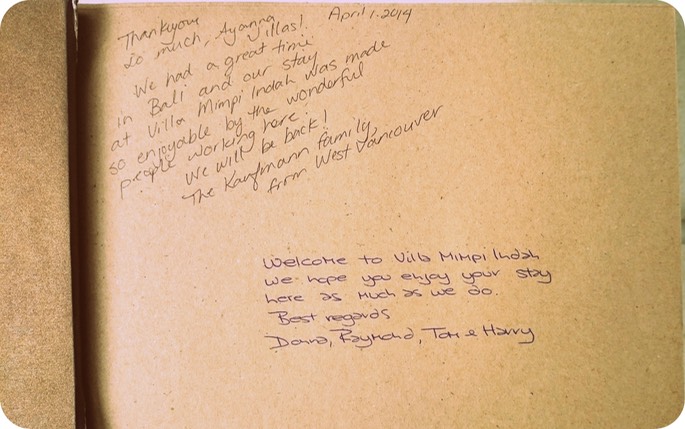 Thankyou April 1. 2014
so much, Ayanna
Villas!
We had a great time
in Bali and our stay
at Villa Mimpi Indah was made
so enjoyable by the wonderful
people working here.
We will be back!
The Kaufmann family,
from West Vancouver
Welcome to Villa Mimpi Indah
We hope you enjoy your stay
here as much as we do.
Best regards
Donna, Raymond, Tom & Harry